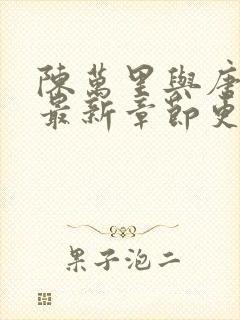 陳萬里與唐
最新章節更
果子泡二